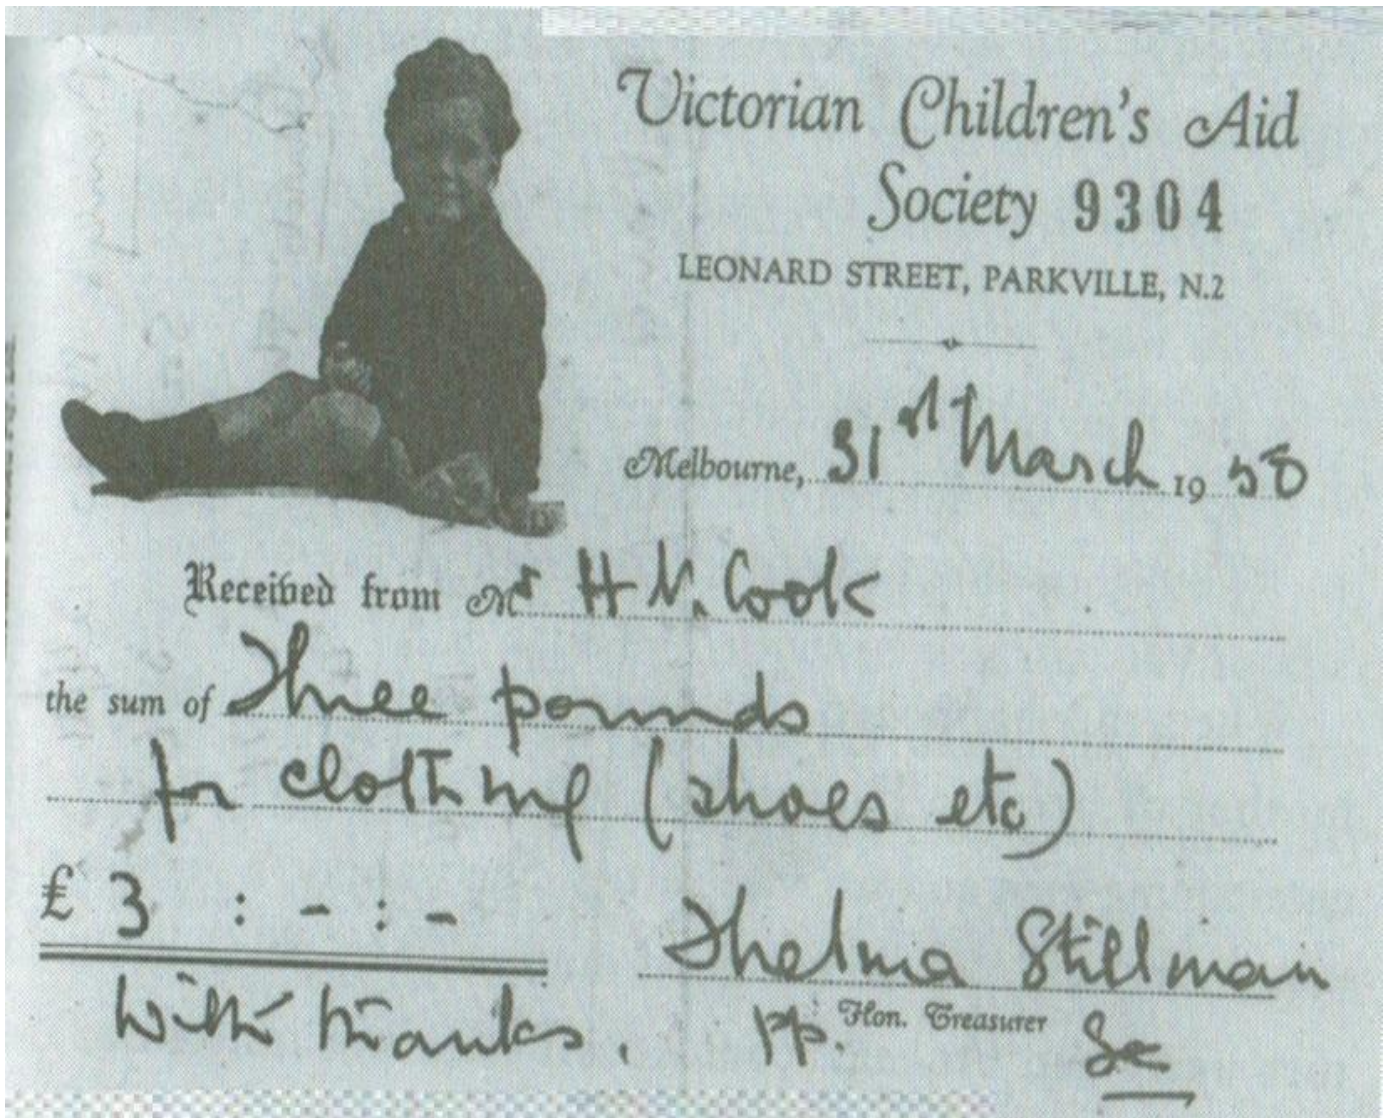 Victorian Children's Aid
Society 9304
LEONARD STREET, PARKVILLE, N.2
Melbourne, 31st March 1950
Received from Mr H N. Cook
the sum of Three pounds
for clothing (shoes etc)
£ 3 : - : -
Thelma Stillman
With thanks. pp. Hon. Treasurer